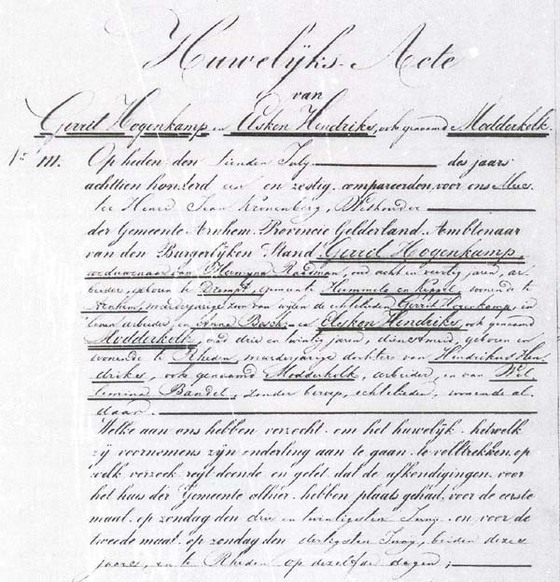 Huwelijks-Acte
van
Gerrit Hogenkamp en Elsken Hendriks, ook genaamd Modderkolk
No 111. Op heden den tienden July des jaars
achttien honderd een en zestig compareerden voor ons Mees-
ter Henri Jean Kronenberg, Wethouder
der Gemeente Arnhem Provincie Gelderland Ambtenaar
van den Burgerlijken Stand Gerrit Hogenkamp,
weduwnaar van Hermyna Radsman, oud acht en veertig jaren, ar-
beider, geboren te Drempt, gemeente Hummelo en Keppel, wonende te
Arnhem, meerderjarige zoon van wijlen de echtelieden Gerrit Hogenkamp, in
leven arbeider, en Anna en Elsken Hendriks, ook genaamd
Modderkolk, oud drie en twintig jaren, dienstmeid, geboren en
wonende te Rheden, meerderjarige dochter van Hendrikus Hen-
drikes, ook genaamd Modderkolk, arbeider, en van Wil-
lemina Bandel, zonder beroep, echtelieden, wonende al-
daar.
Welke aan ons hebben verzocht om het huwelijk hetwelk
zij voornemens zijn onderling aan te gaan te voltrekken, op
welk verzoek regt doende en gelet dat de afkondigingen voor
het huis der Gemeente alhier hebben plaats gehad, voor de eerste
maal op zondag den drie en twintigsten Juny en voor de
tweede maal op zondag den dertigsten Juny, beiden dezes
jaars, en te Rheden op dezelfde dagen;